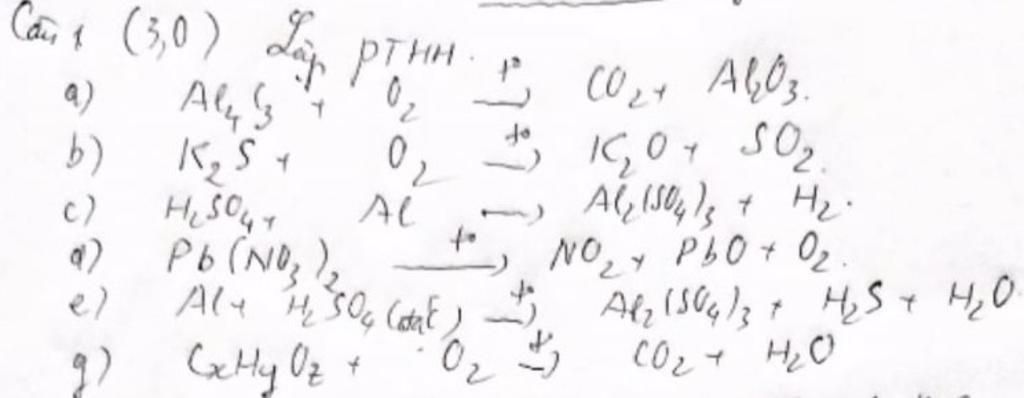 Câu 1 (3,0) Lập PTHH.
a) Al₄C₃ + O₂ —t°→ CO₂ + Al₂O₃.
b) K₂S + O₂ —t°→ K₂O + SO₂.
c) H₂SO₄ + Al → Al₂(SO₄)₃ + H₂.
d) Pb(NO₃)₂ —t°→ NO₂ + PbO + O₂.
e) Al + H₂SO₄ (đặc) —t°→ Al₂(SO₄)₃ + H₂S + H₂O
g) CxHyOz + O₂ —t°→ CO₂ + H₂O